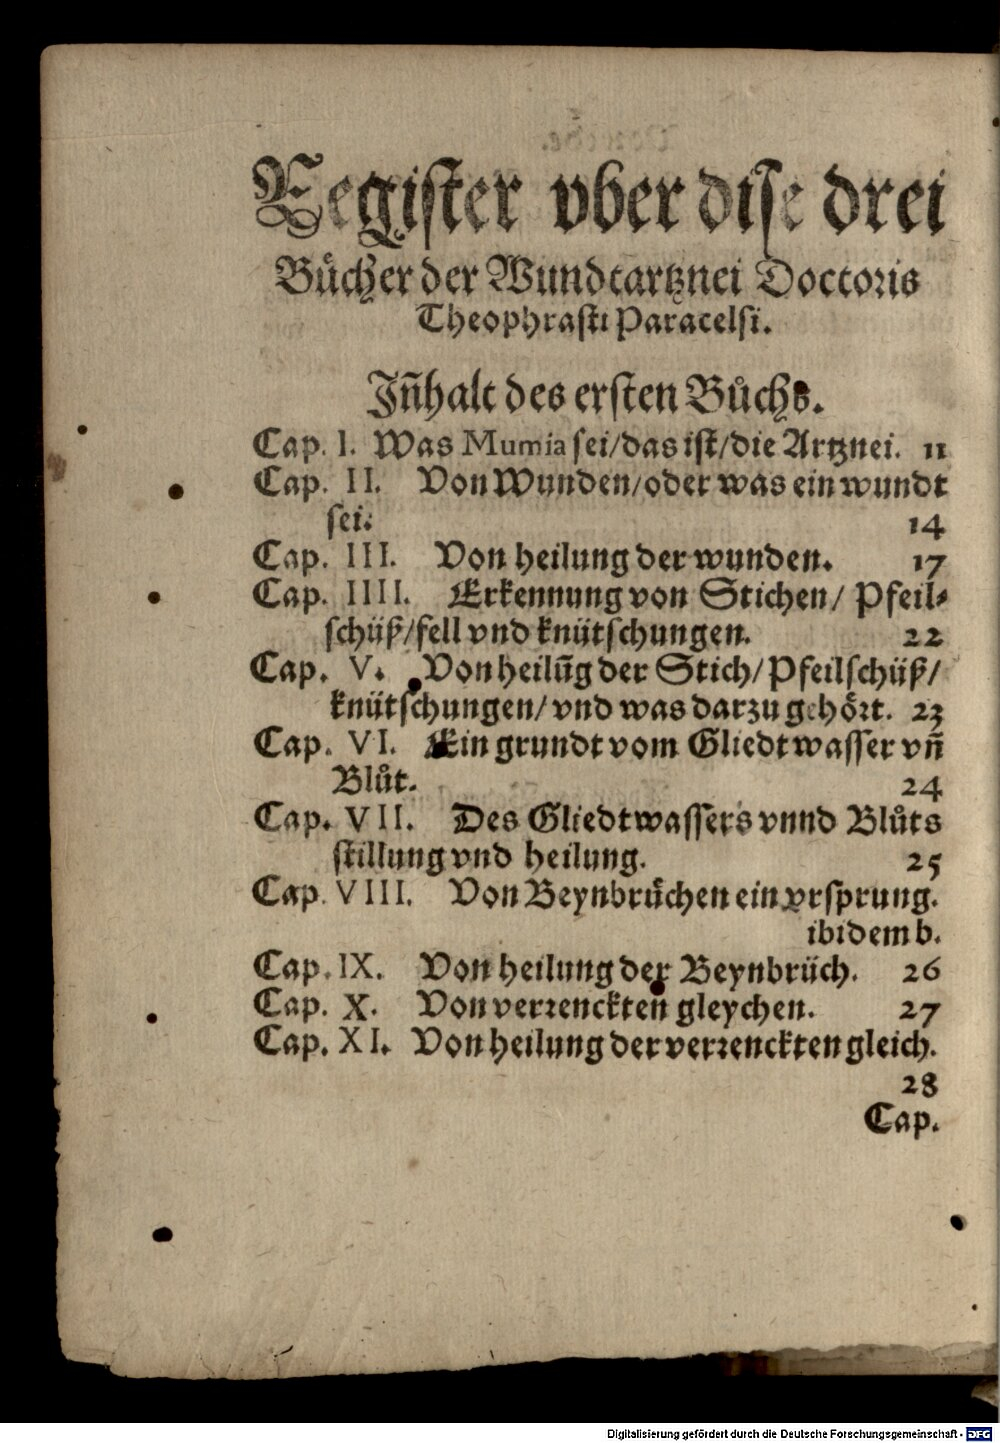 Register vber dise drei
Bücher der Wundtartznei Doctoris
Theophrasti Paracelsi.
Jñhalt des ersten Bůchs.
Cap. I. Was Mumia sei/das ist/die Artznei. 11
Cap. II. Von Wunden/oder was ein wundt
sei. 14
Cap. III. Von heilung der wunden. 17
Cap. IIII. Erkennung von Stichen/ Pfeil⸗
schüß/fell vnd knütschungen. 22
Cap. V. Von heilūg der Stich/Pfeilschüß/
knütschungen/vnd was darzu gehört. 23
Cap. VI. Ein grundt vom Gliedtwasser vñ
Blůt. 24
Cap. VII. Des Gliedtwassers vnnd Blůts
stillung vnd heilung. 25
Cap. VIII. Von Beynbrüchen ein vrsprung.
ibidem b.
Cap. IX. Von heilung der Beynbrüch. 26
Cap. X. Von verrenckten gleychen. 27
Cap. XI. Von heilung der verrenckten gleich.
28
Cap.
Digitalisierung gefördert durch die Deutsche Forschungsgemeinschaft - DFG